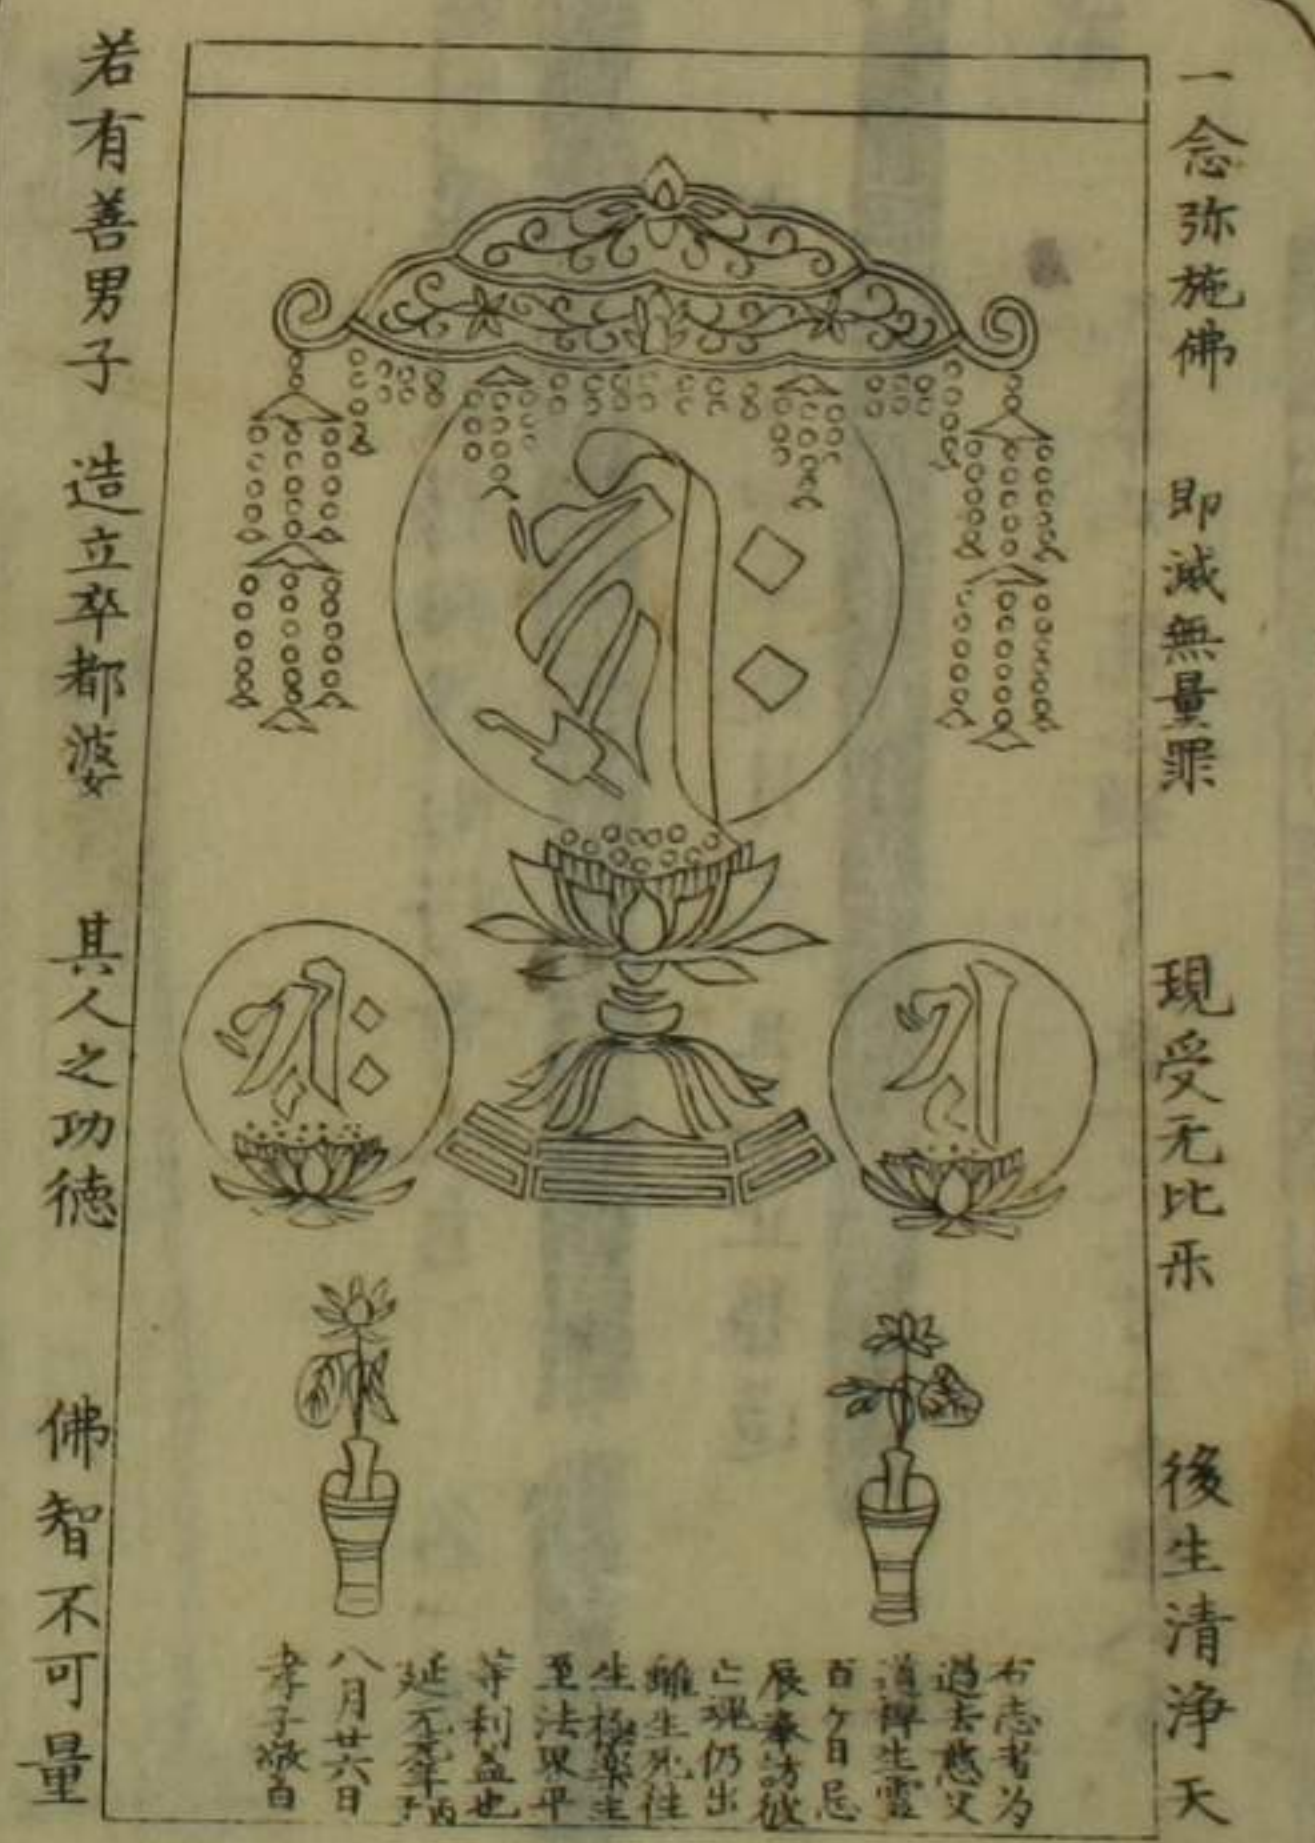 一念弥施佛　即滅無量罪　現受无比乐　後生清浄天
右志者为
過去慈父
道禅生霊
百ケ日忌
辰奉訪彼
亡魂仍出
離生死往
生極楽
至法界平
等利益也
延元元年丙子
八月廿六日
孝子敬白
若有善男子　造立卒都婆　其人之功徳　佛智不可量